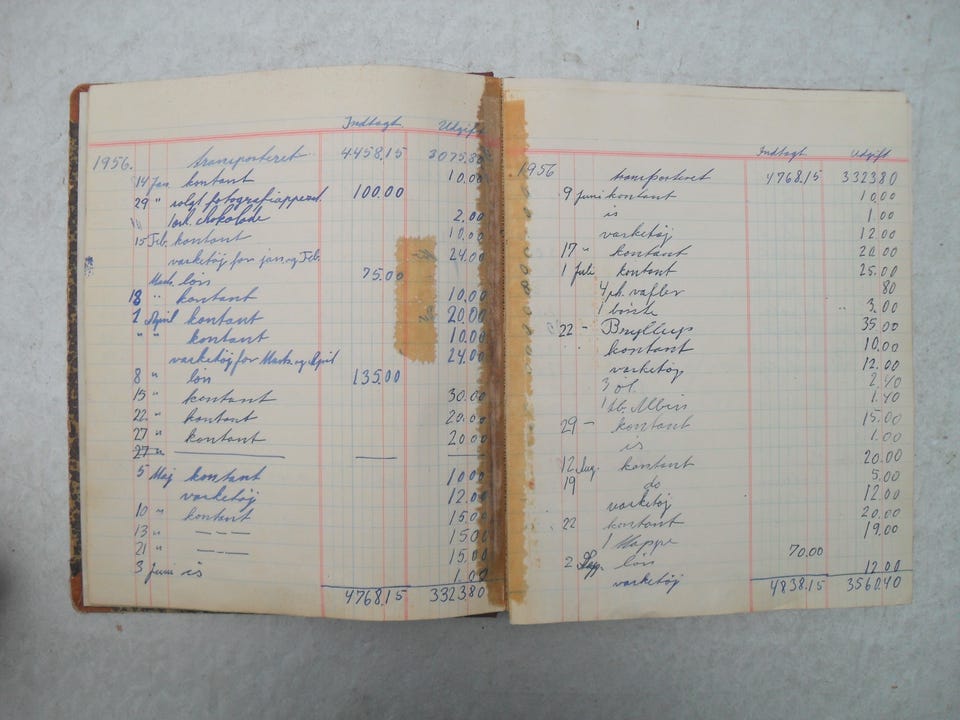 Indtægt. Udgift
1956. transporteret 4458.15 3075.80
14 Jan kontant 10.00
29 " solgt fotografiapparat 100.00
1 ark. chokolade 2.00
15 Feb. kontant 10.00
vasketøj for jan. og Feb. 24.00
Marts løn 75.00
18 " kontant 10.00
2 April kontant 20.00
" " kontant 10.00
vasketøj for Marts og April 24.00
8 " løn 135.00
15 " kontant 30.00
22 " kontant 20.00
27 " kontant 20.00
27 "
5 Maj kontant 10.00
vasketøj 12.00
10 " kontant 15.00
13 " — — — 15.00
21 " — — — 15.00
3 Juni is 1.00
4768.15 3323.80
Indtægt Udgift
1956 transporteret 4768.15 3323.80
9 Juni kontant 10.00
is 1.00
vasketøj 12.00
17 " kontant 20.00
1 Juli kontant 25.00
4 pk. vafler 80
1 børste 3.00
22 - Bryllup 35.00
kontant 10.00
vasketøj 12.00
3 øl. 2.40
1 Albin 1.40
29 - kontant 15.00
is 1.00
12 Aug. kontant 20.00
19 do 5.00
vasketøj 12.00
22 kontant 20.00
1 Mappe 19.00
2 Sep. løn 70.00
vasketøj 12.00
4838.15 3560.40